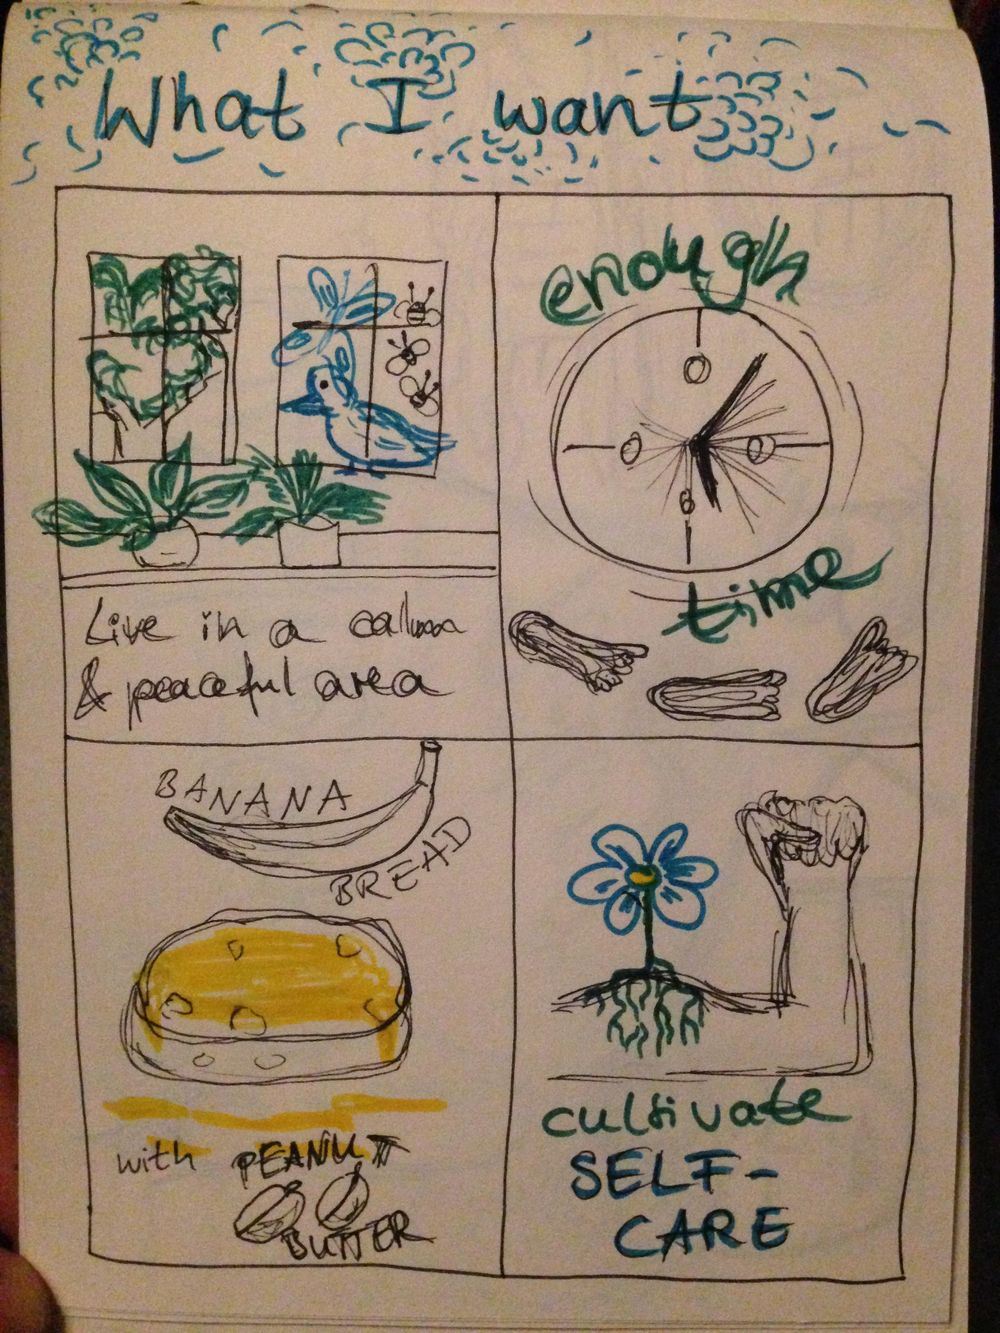 What I want
Live in a calm
& peaceful area
enough
time
BANANA
BREAD
with PEANUT
BUTTER
cultivate
SELF-
CARE